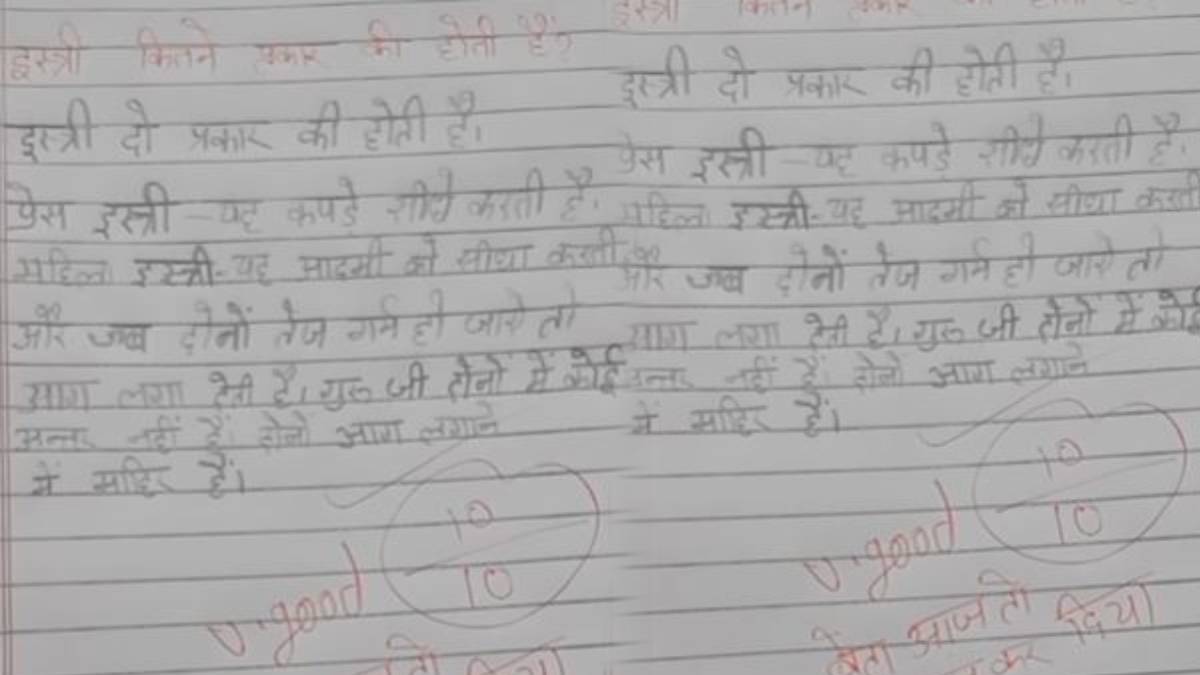 इस्त्री कितने प्रकार की होती है?
इस्त्री दो प्रकार की होती है।
प्रेस इस्त्री - यह कपड़े सीधे करती है।
महिला इस्त्री - यह आदमी को सीधा करती है
और जब दोनों तेज गर्म हो जाये तो
आग लगा देती है। गुरु जी दोनों में कोई
अन्तर नहीं है दोनों आग लगाने
में माहिर हैं।
10
10
v.good
तो
दिया
इस्त्री कितने प्रकार की होती
इस्त्री दो प्रकार की होती है।
प्रेस इस्त्री - यह कपड़े सीधे करती है।
महिला इस्त्री - यह आदमी को सीधा करती
और जब दोनों तेज गर्म हो जाये तो
आग लगा देती है। गुरु जी दोनों में कोई
अन्तर नहीं है दोनों आग लगाने
में माहिर हैं।
10
10
v.good
बेटा आज तो
कर दिया